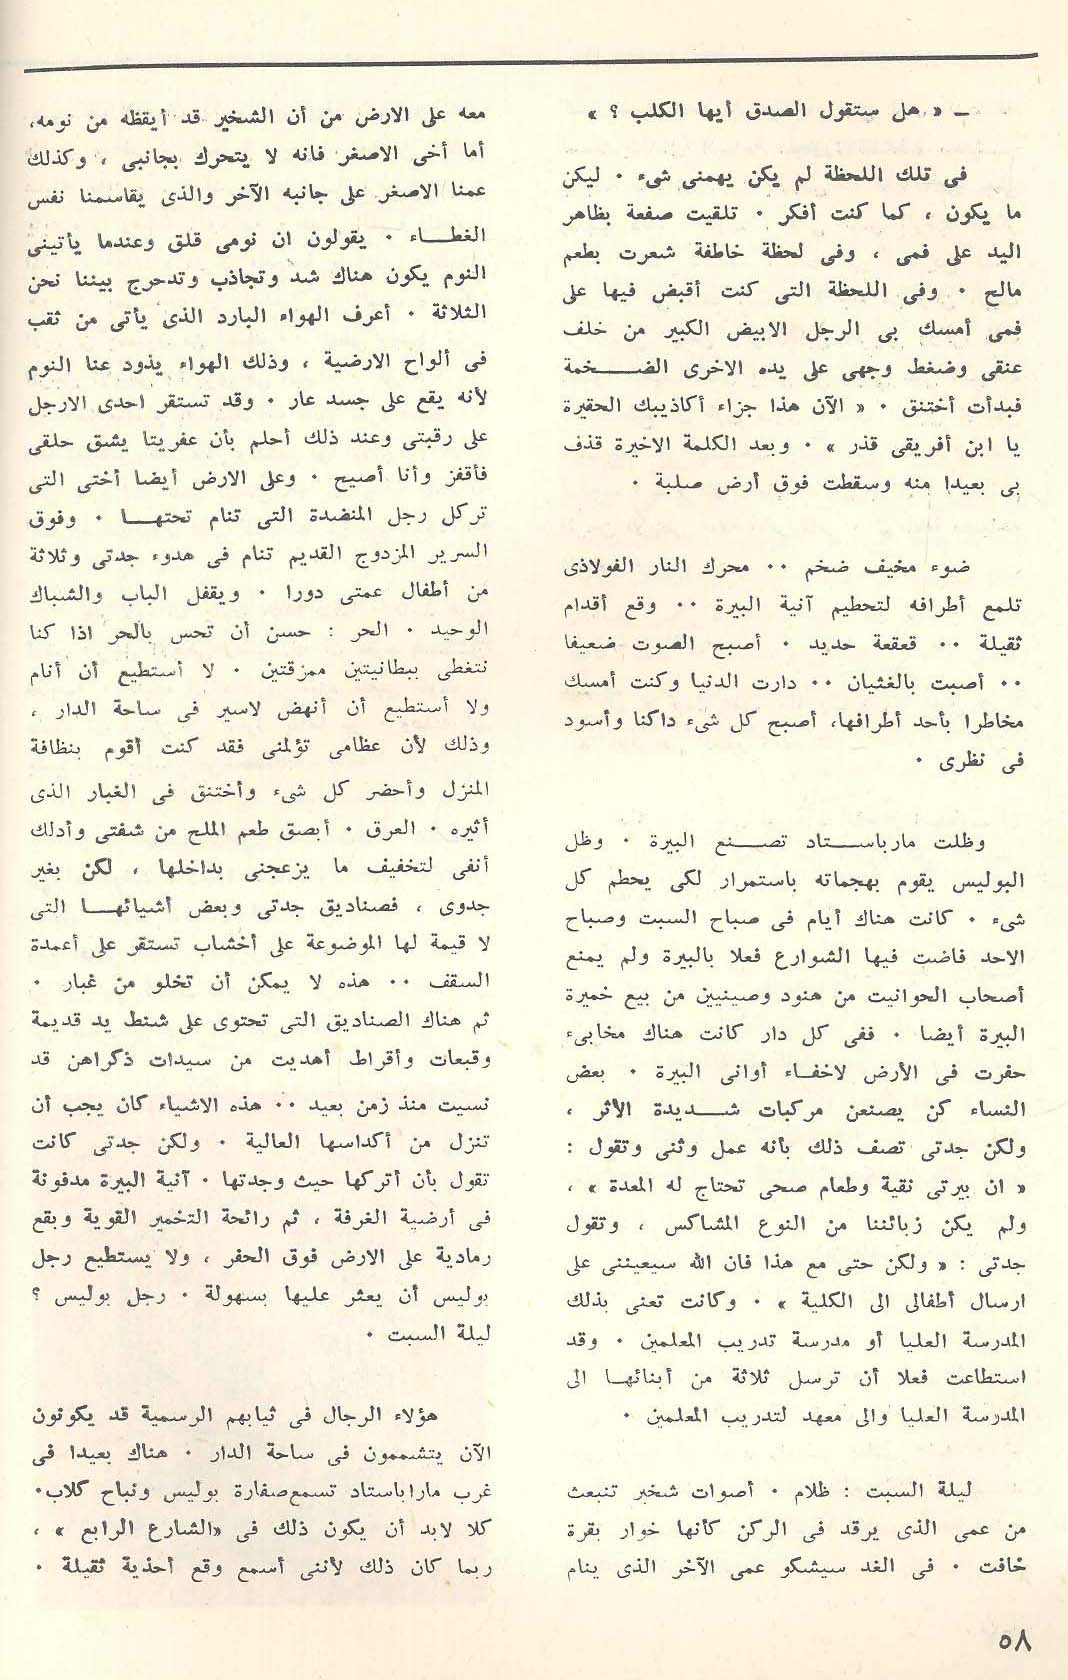 ــ « هل ستقول الصدق أيها الكلب ؟ »
فى تلك اللحظة لم يكن يهمنى شىء ٠ ليكن
ما يكون ، كما كنت أفكر ٠ تلقيت صفعة بظاهر
اليد على فمى ، وفى لحظة خاطفة شعرت بطعم
مالح ٠ وفى اللحظة التى كنت أقبض فيها على
فمى أمسك بى الرجل الابيض الكبير من خلف
عنقى وضغط وجهى على يده الاخرى الضـــخمة
فبدأت أختنق ٠ « الآن هذا جزاء أكاذيبك الحقيرة
يا ابن أفريقى قذر » ٠ وبعد الكلمة الاخيرة قذف
بى بعيدا منه وسقطت فوق أرض صلبة ٠
ضوء مخيف ضخم ٠٠ محرك النار الفولاذى
تلمع أطرافه لتحطيم آنية البيرة ٠٠ وقع أقدام
ثقيلة ٠٠ قعقعة حديد ٠ أصبح الصوت ضعيفا
٠٠ أصبت بالغثيان ٠٠ دارت الدنيا وكنت أمسك
مخاطرا بأحد أطرافها، أصبح كل شىء داكنا وأسود
فى نظرى ٠
وظلت مارباســـتاد تصـــنع البيرة ٠ وظل
البوليس يقوم بهجماته باستمرار لكى يحطم كل
شىء ٠ كانت هناك أيام فى صباح السبت وصباح
الاحد فاضت فيها الشوارع فعلا بالبيرة ولم يمنع
أصحاب الحوانيت من هنود وصينيين من بيع خميرة
البيرة أيضا ٠ ففى كل دار كانت هناك مخابىء
حفرت فى الأرض لاخفـاء أوانى البيرة ٠ بعض
النساء كن يصنعن مركبات شـــديدة الأثر ،
ولكن جدتى تصف ذلك بأنه عمل وثنى وتقول :
« ان بيرتى نقية وطعام صحى تحتاج له المعدة » ،
ولم يكن زبائننا من النوع المشاكس ، وتقول
جدتى : « ولكن حتى مع هذا فان الله سيعيننى على
ارسال أطفالى الى الكلية » ٠ وكانت تعنى بذلك
المدرسة العليا أو مدرسة تدريب المعلمين ٠ وقد
استطاعت فعلا أن ترسل ثلاثة من أبنائهـا الى
المدرسة العليا والى معهد لتدريب المعلمين ٠
ليلة السبت : ظلام ٠ أصوات شخير تنبعث
من عمى الذى يرقد فى الركن كأنها خوار بقرة
خافت ٠ فى الغد سيشكو عمى الآخر الذى ينام
معه على الارض من أن الشخير قد أيقظه من نومه،
أما أخى الاصغر فانه لا يتحرك بجانبى ، وكذلك
عمنا الاصغر على جانبه الآخر والذى يقاسمنا نفس
الغطـــاء ٠ يقولون ان نومى قلق وعندما يأتينى
النوم يكون هناك شد وتجاذب وتدحرج بيننا نحن
الثلاثة ٠ أعرف الهواء البارد الذى يأتى من ثقب
فى ألواح الارضية ، وذلك الهواء يذود عنا النوم
لأنه يقع على جسد عار ٠ وقد تستقر احدى الارجل
على رقبتى وعند ذلك أحلم بأن عفريتا يشق حلقى
فأقفز وأنا أصيح ٠ وعلى الارض أيضا أختى التى
تركل رجل المنضدة التى تنام تحتهـــا ٠ وفوق
السرير المزدوج القديم تنام فى هدوء جدتى وثلاثة
من أطفال عمتى دورا ٠ ويقفل الباب والشباك
الوحيد ٠ الحر : حسن أن تحس بالحر اذا كنا
نتغطى ببطانيتين ممزقتين ٠ لا أستطيع أن أنام
ولا أستطيع أن أنهض لاسير فى ساحة الدار ،
وذلك لأن عظامى تؤلمنى فقد كنت أقوم بنظافة
المنزل وأحضر كل شىء وأختنق فى الغبار الذى
أثيره ٠ العرق ٠ أبصق طعم الملح من شفتى وأدلك
أنفى لتخفيف ما يزعجنى بداخلها ، لكن بغير
جدوى ، فصناديق جدتى وبعض أشيائهـــا التى
لا قيمة لها الموضوعة على أخشاب تستقر على أعمدة
السقف ٠٠ هذه لا يمكن أن تخلو من غبار ٠
ثم هناك الصناديق التى تحتوى على شنط يد قديمة
وقبعات وأقراط أهديت من سيدات ذكراهن قد
نسيت منذ زمن بعيد ٠٠ هذه الاشياء كان يجب أن
تنزل من أكداسها العالية ٠ ولكن جدتى كانت
تقول بأن أتركها حيث وجدتها ٠ آنية البيرة مدفونة
فى أرضية الغرفة ، ثم رائحة التخمير القوية وبقع
رمادية على الارض فوق الحفر ، ولا يستطيع رجل
بوليس أن يعثر عليها بسهولة ٠ رجل بوليس ؟
ليلة السبت ٠
هؤلاء الرجال فى ثيابهم الرسمية قد يكونون
الآن يتشممون فى ساحة الدار ٠ هناك بعيدا فى
غرب ماراباستاد تسمع صفارة بوليس ونباح كلاب٠
كلا لابد أن يكون ذلك فى «الشارع الرابع » ،
ربما كان ذلك لأننى أسمع وقع أحذية ثقيلة ٠
٥٨